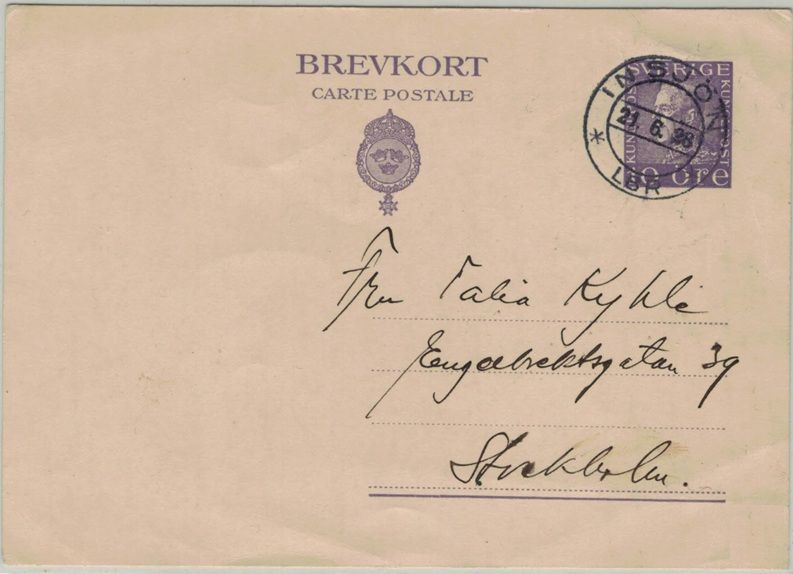 BREVKORT
CARTE POSTALE
SVERIGE
10 öre
INSJÖN
21. 6. 28
LBR
Fru Talia Kyhle
Engelbrektsgatan 39
Stockholm.